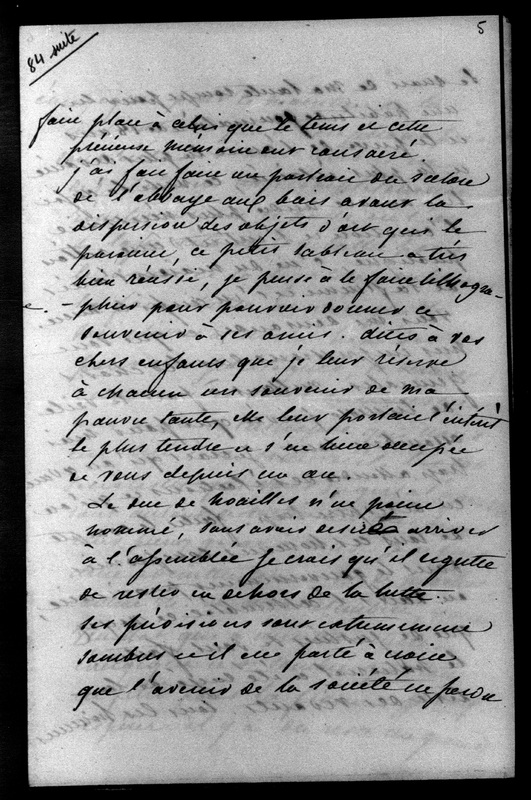 84 suite
5
faire place à celui que le tems et cette
précieuse mémoire ont consacré.
j'ai fait faire un portrait du salon
de l'abbaye aux bois avant la
dispersion des objets d'art qui le
paraient, ce petit tableau a très
bien réussi, je pense à le faire lithogra-
phier pour pouvoir donner ce
souvenir à ses amis. dites à vos
chers enfants que je leur réserve
à chacun un souvenir de ma
pauvre tante, elle leur portait l'intérêt
le plus tendre et s'en est occupée
de vous depuis un an.
Le duc de Noailles n'est point
nommé, sans avoir désiré arriver
à l'assemblée je crois qu'il regrette
de rester en dehors de la lutte.
ses prévisions sont extrêmement
sombres et il est porté à croire
que l'avenir de la société en